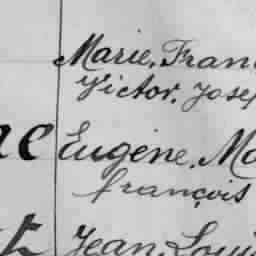 Marie, Fran
Victor, Josep
Eugène, Ma
françois
Jean, Loui